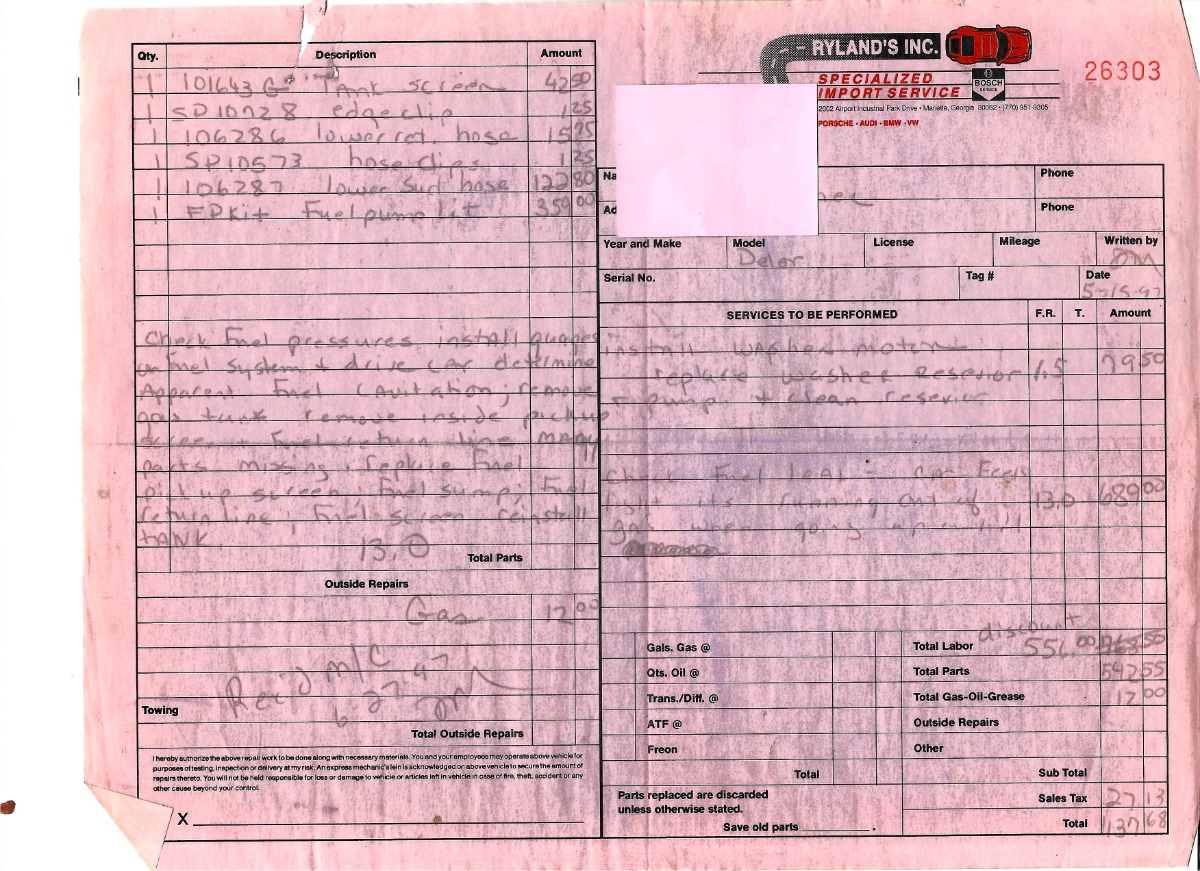 RYLAND'S INC.
SPECIALIZED
IMPORT SERVICE
BOSCH
SERVICE
2002 Airport Industrial Park Drive • Marietta, Georgia 30062 • (770) 951-9305
PORSCHE - AUDI - BMW - VW
26303
Qty. Description Amount
1 101643 Tank screen 42 50
1 SP10028 edge clip 1 25
1 106286 lower ret. hose 15 95
1 SP10573 hose clips 1 25
1 106287 lower hose 122 80
1 FPKit Fuel pump kit 359 00
Check Fuel pressures install guages
on Fuel system + drive car determine
Apparent Fuel Cavitation; remove
gas tank remove inside pickup
screen + Fuel return line many
parts missing, replace Fuel
pick up screen, Fuel sump, Fuel
return line, Fuel screen reinstall
tANK
13.0
Total Parts
Outside Repairs
Gas 12 00
Rec'd M/C
6 27 97
Towing
Total Outside Repairs
I hereby authorize the above repair work to be done along with necessary materials. You and your employees may operate above vehicle for
purposes of testing, inspection or delivery at my risk. An express mechanic's lein is acknowledged on above vehicle to secure the amount of
repairs thereto. You will not be held responsible for loss or damage to vehicle or articles left in vehicle in case of fire, theft, accident or any
other cause beyond your control.
X
Na
Phone
Ad
Phone
Year and Make Model License Mileage Written by
Delor
Serial No. Tag # Date
SERVICES TO BE PERFORMED F.R. T. Amount
install washer motor
replace washer Reservior 1.5 79 50
+ pump, + clean reservior
Check Fuel leak - car Feels
light its running out of 13.0 689 00
gas when going up a hill
discount
Gals. Gas @
Total Labor 556.00 768 50
Qts. Oil @
Total Parts 542 55
Trans./Diff. @
Total Gas-Oil-Grease 12 00
ATF @
Outside Repairs
Freon
Other
Total
Sub Total
Parts replaced are discarded
unless otherwise stated.
Sales Tax 27 13
Save old parts
Total 1137 68